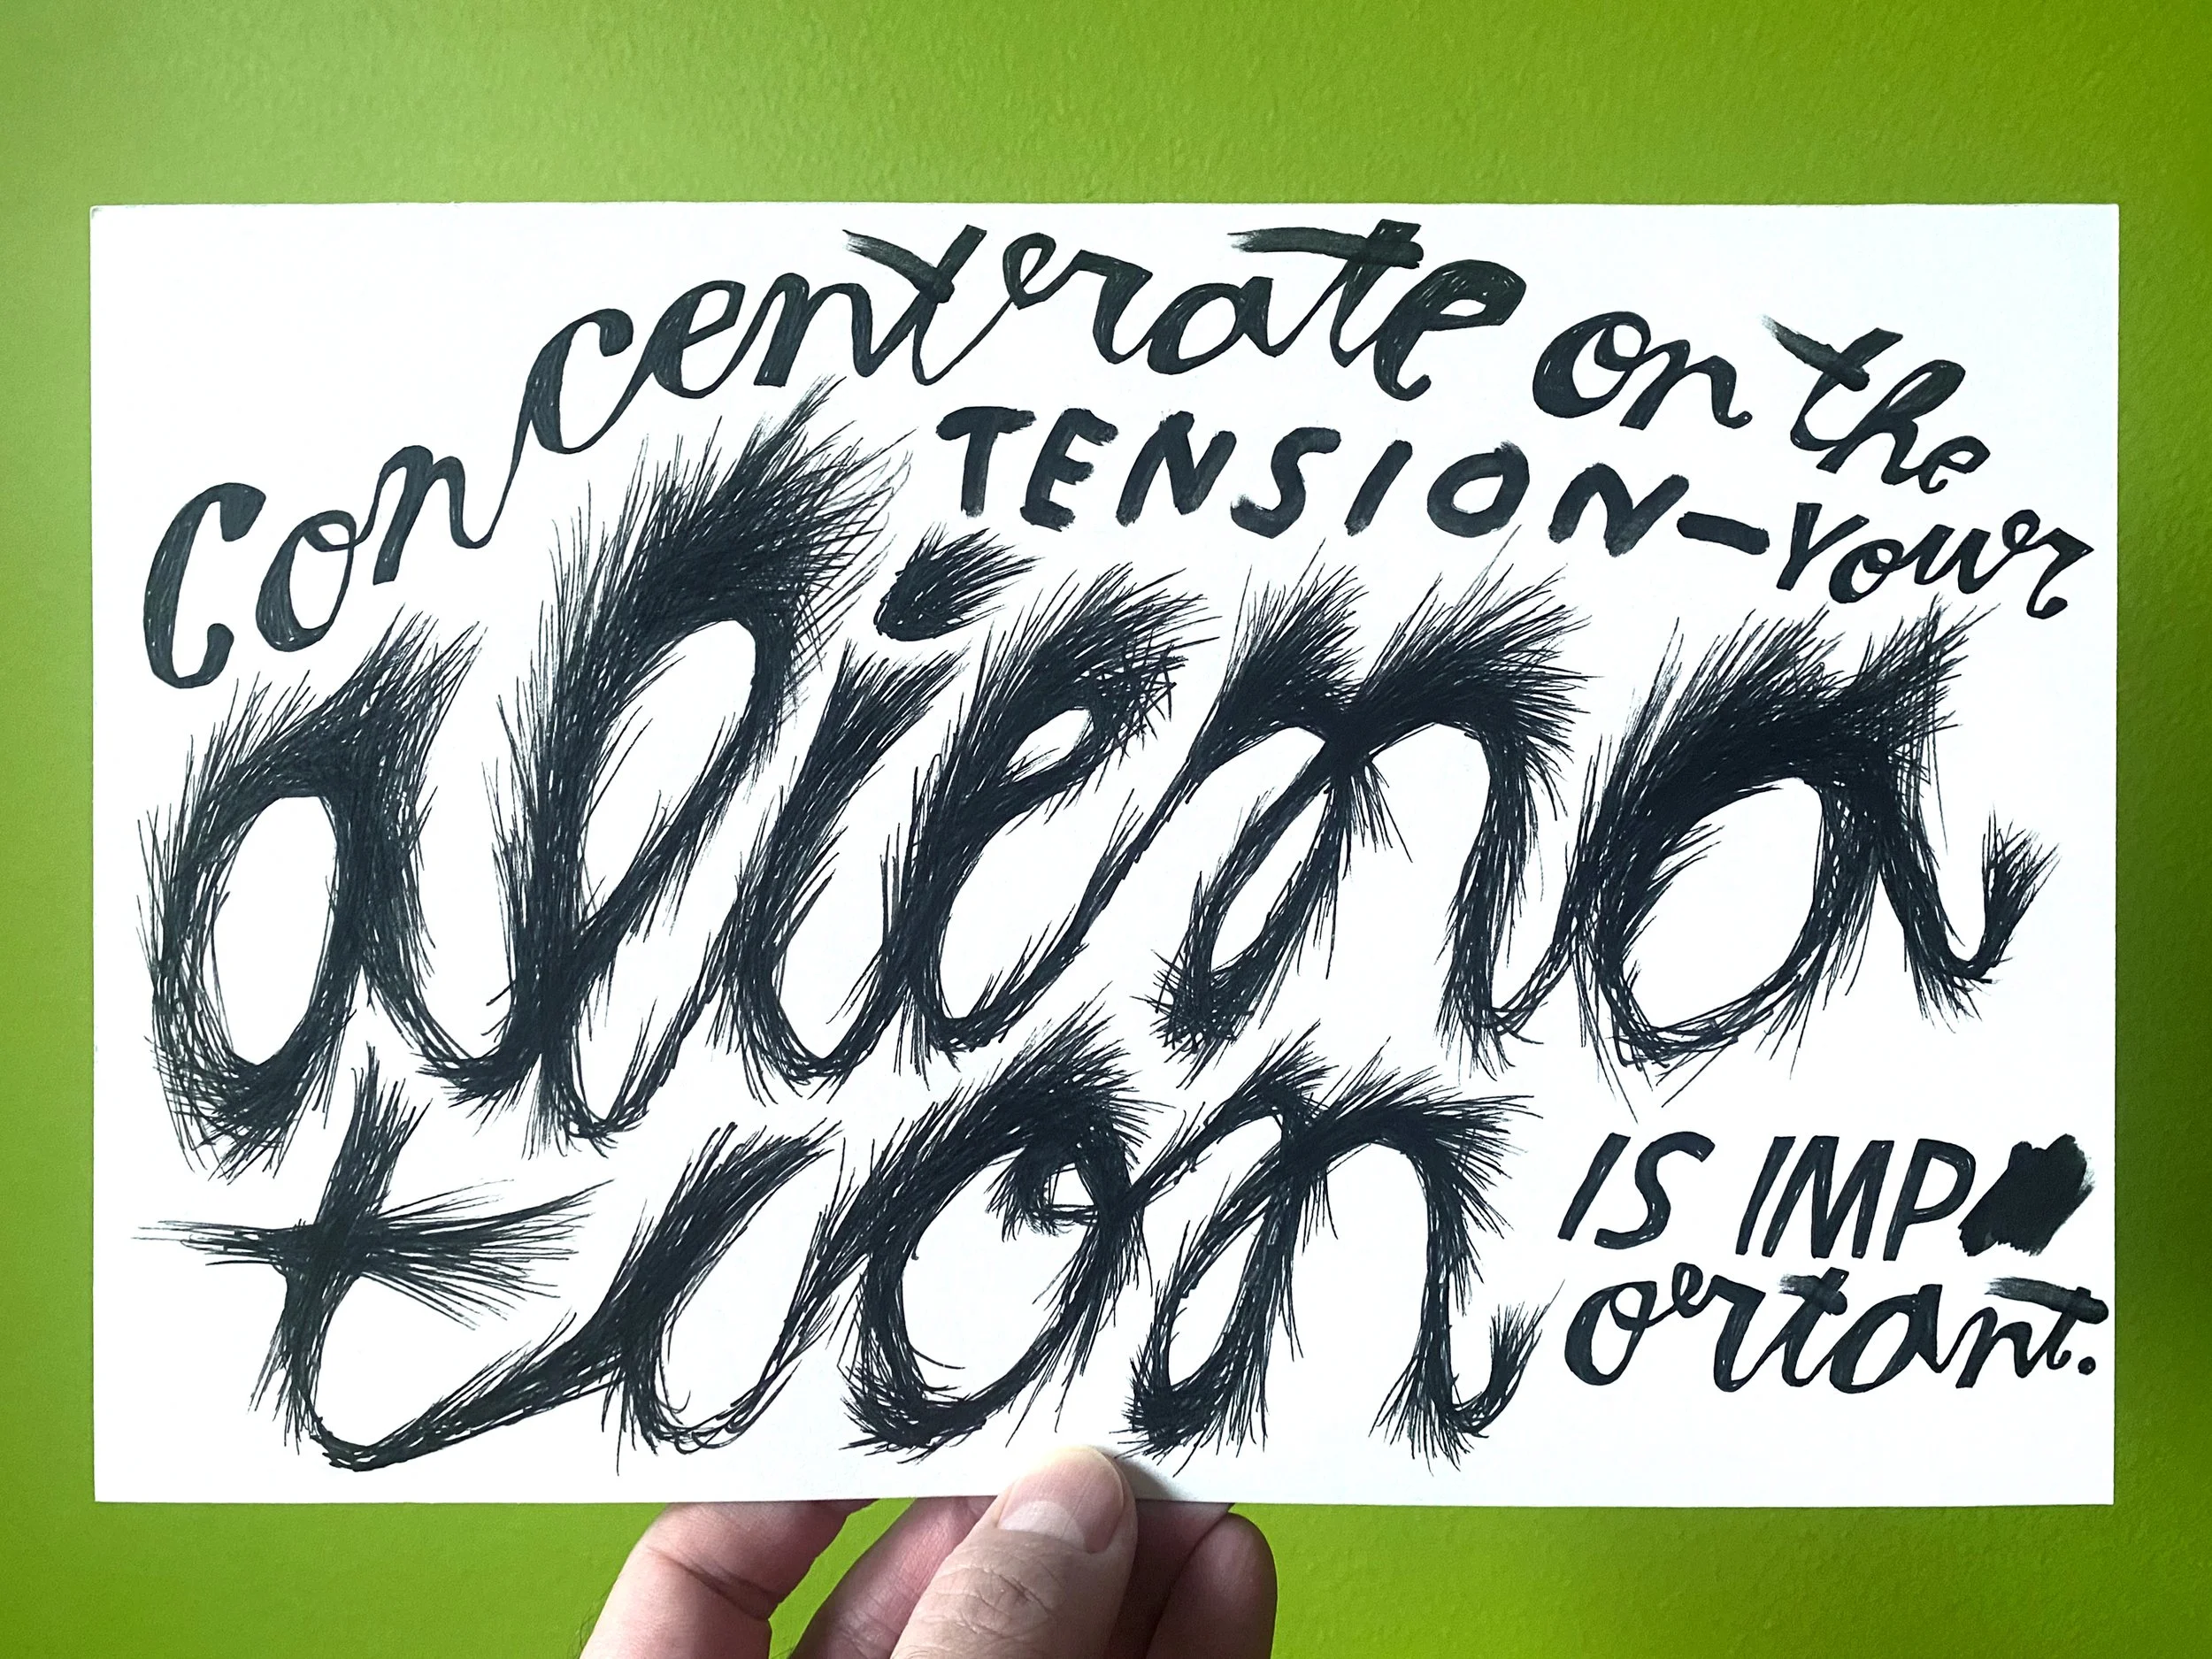 Concentrate on the
TENSION—Your
aliena
tion IS IMP
ortant.